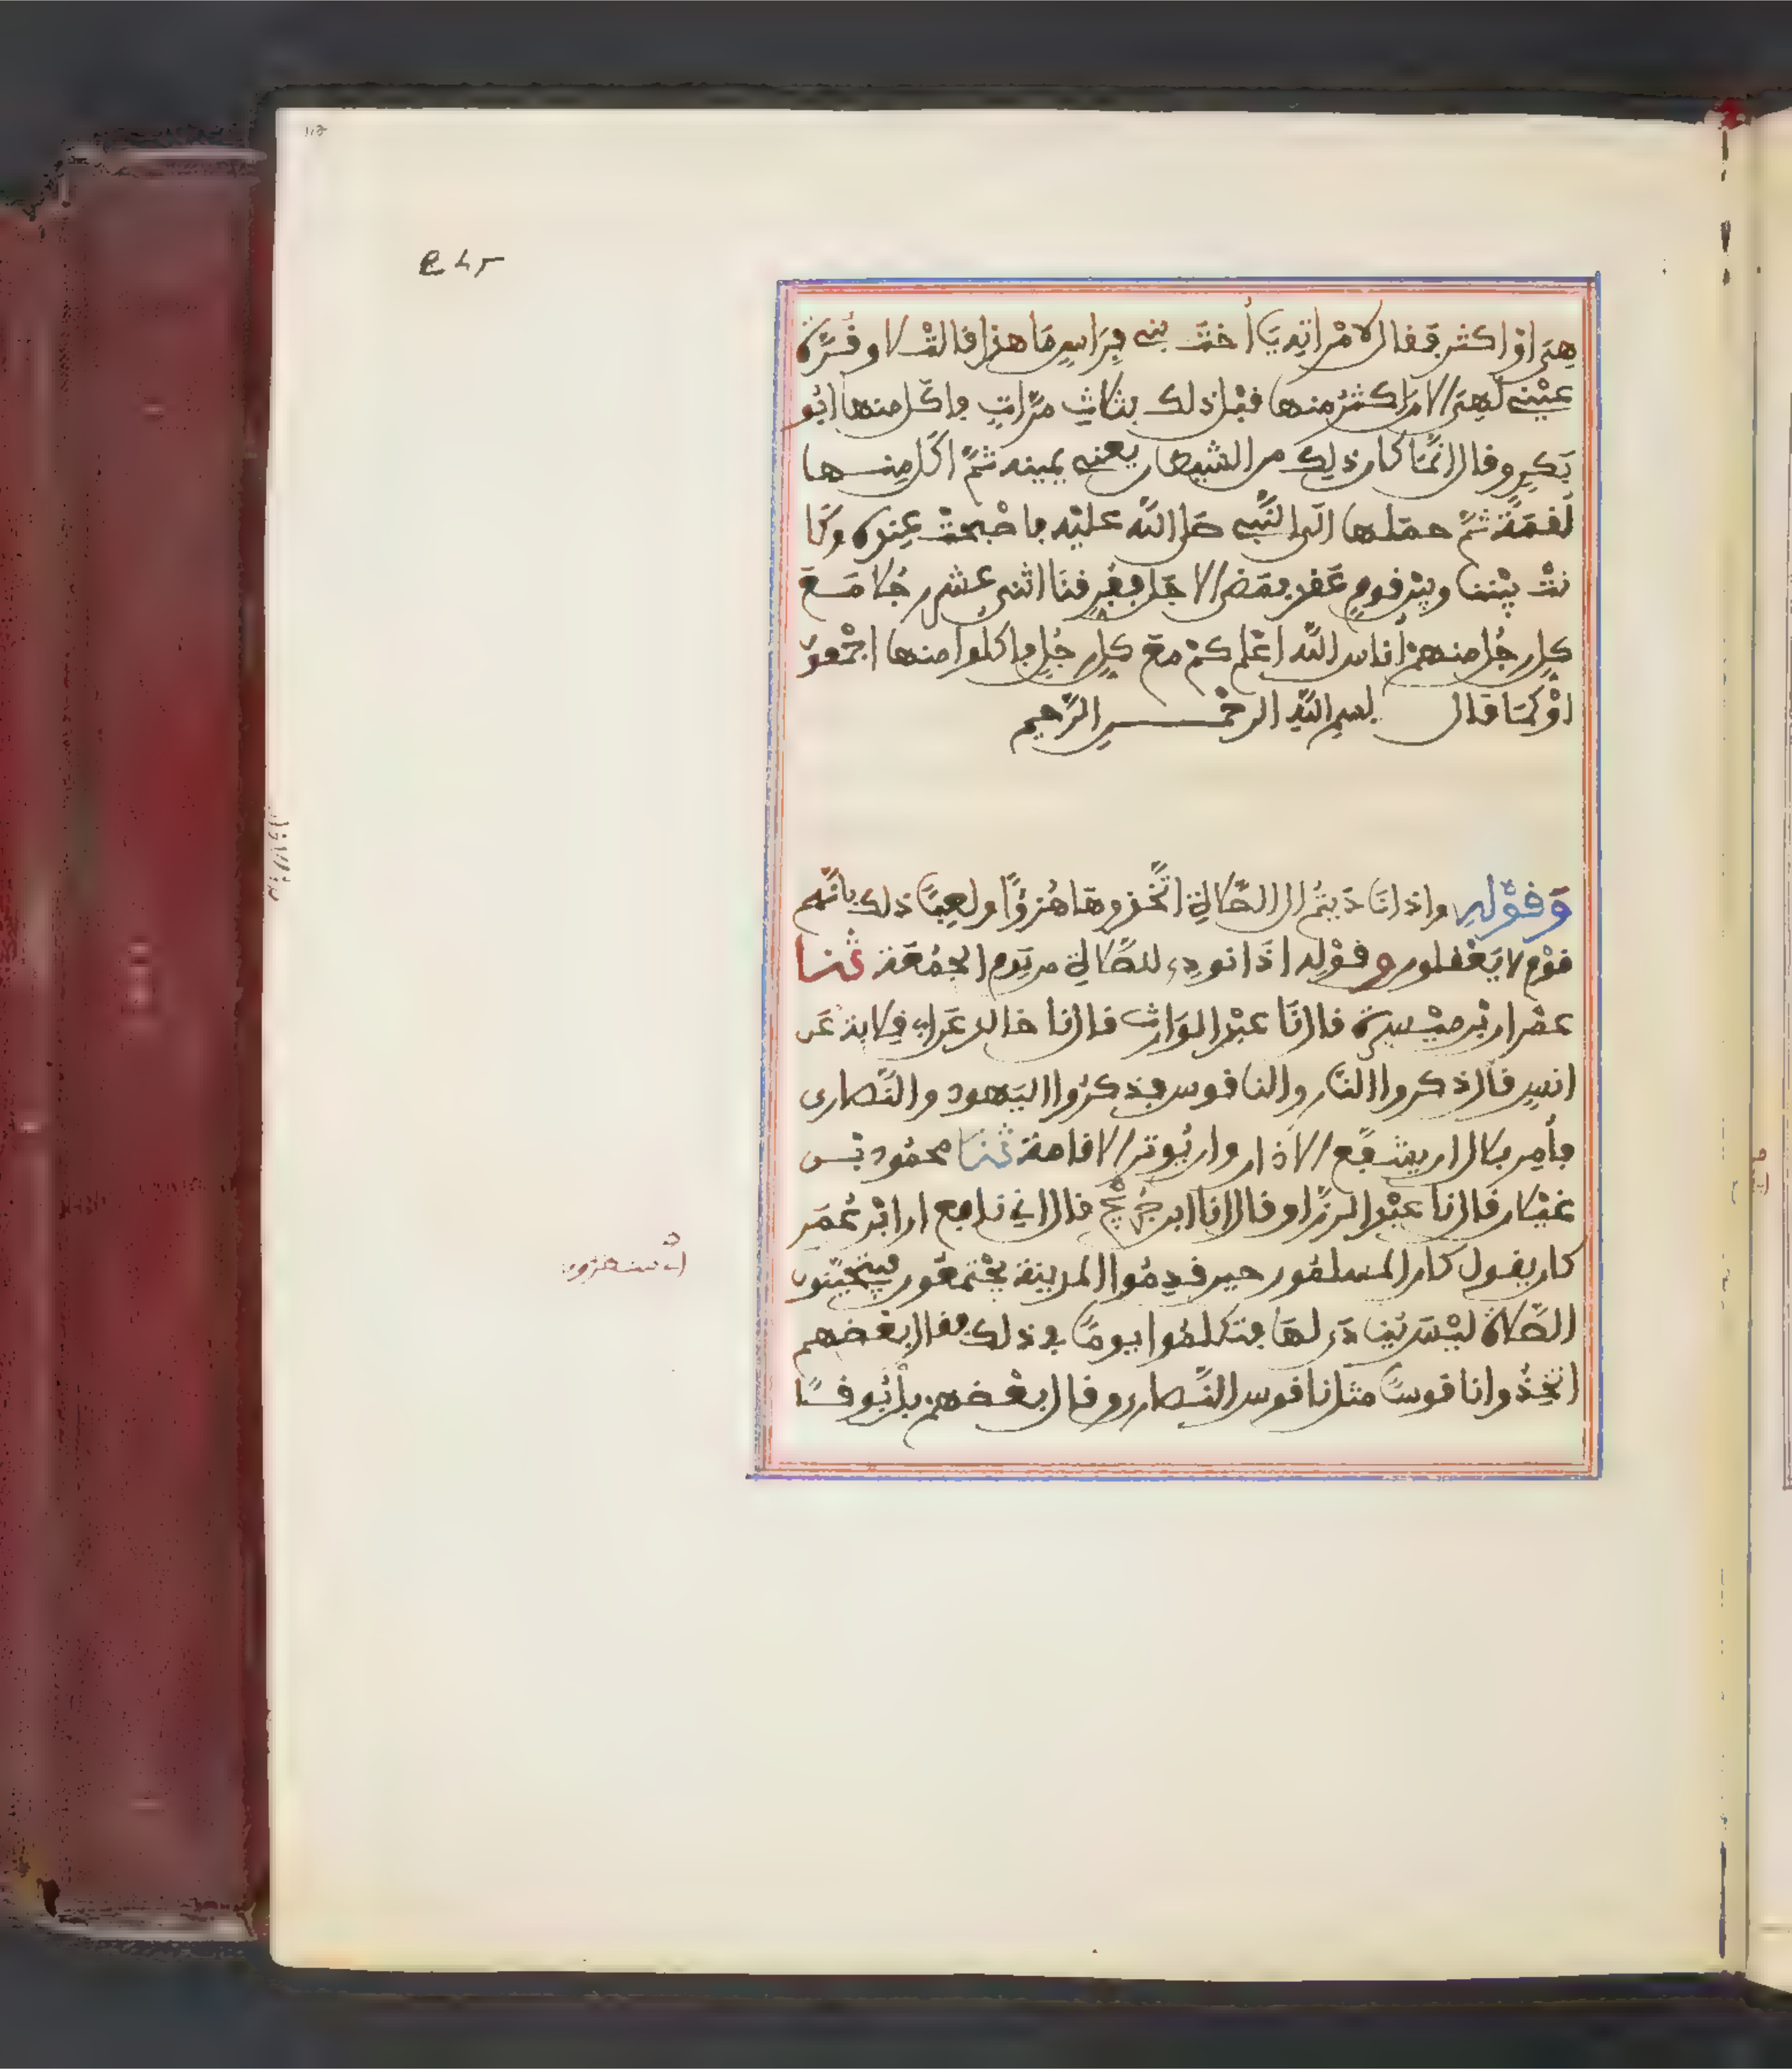 هِيَ اوْ اكثر فَقال لامْراتِهِ يَا أختَ بني فِراسٍ مَا هذا قالتْ لا وقُرَّة
عيْني لَهِيَ الان اكثرُ منها قبْل ذلك بثلاثِ مرَّاتٍ فاكَل منها ابُو
بَكرٍ وقال انَّمَا كان ذلِك من الشيطان يعني يمينه ثمَّ اكَل مِنـــها
لُقمَةً ثمَّ حمَلها الَى النَّبي صَلى اللَّه عليْه فاصْبحتْ عِندهُ وكَا
نتْ بيْننا وبيْن قومٍ عَقد فمَضى الاجَل ففرقنَا اثنى عشر رجُلا مَـعَ
كلِ رجُل منهمْ أناس اللَّه اعْلم كمْ معَ كلِ رجُلٍ فاكلوا منها اجْمَعون
اوْ كَمَا قال بسم اللَّهِ الرحْمـــنِ الرَّحيم
وَقوْلهِ واذا نَادَيتمُ الى الصَّلاةِ اتَّخذوهَا هُزؤًا ولعِبًا ذلك بانَّهم
قوْم لا يَعْقلون وقوْله اذَا نودِي للصَّلاةِ من يَوم الجمُعَة ثنا
عمْران بْن ميْسرة قال نَا عبْد الوَارث قال نا خالد عَن ابي قِلابة عَن
انسٍ قال ذكروا النَّار والناقوس فذكرُوا اليَهود والنَّصارى
فأُمِر بلال ان يشفَع الاذان وان يُوتر الاقامة ثنا محمُود بْـن
غيْلان قال نا عبْد الرزَّاق قال انا ابن جُريْج قال اني نافع ان ابْن عُمَر
كان يقول كان المسلمُون حين قدِمُوا المدينة يجْتمعُون فيتحيَّنون
الصَّلاة ليْسَ يُنادَى لهَا فتكلمُوا يومًا في ذلك فقال بعْضهم
اتخِذُوا ناقوسًا مثل ناقوس النَّصارى وقال بعْضهمْ بلْ بُوقـًا